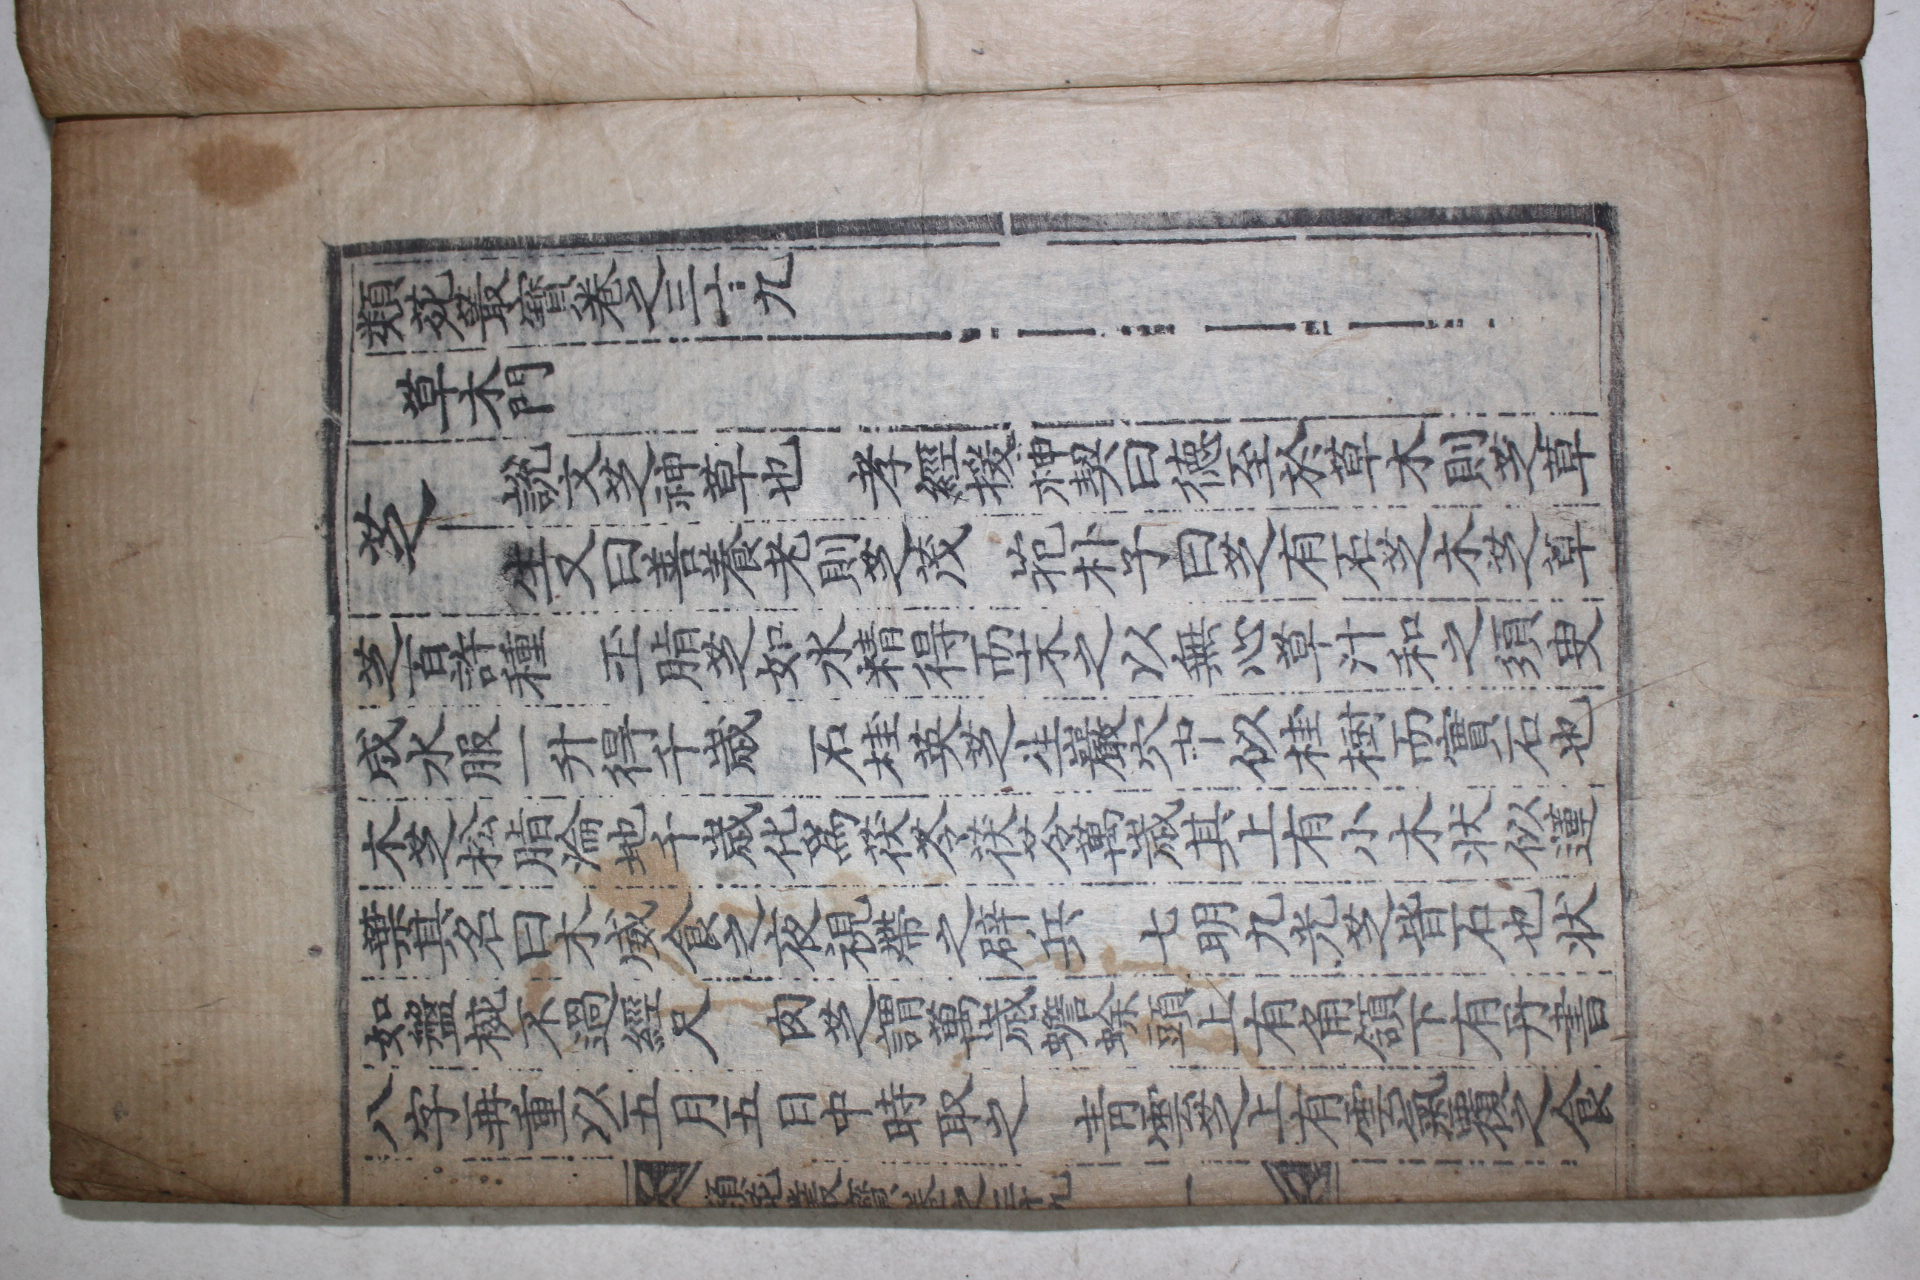 類苑叢寶卷之三十九
草木門
芝
說文芝神草也 孝經援神契曰德至於草木則芝草
生又曰善養老則芝茂 范朴子曰芝有石芝木芝草
芝百許種 玉脂芝如水精得而末之以無心草汁和之須臾
成水服一升得千歲 石桂英芝生巖穴中似桂樹而實石也
木芝松脂淪地千歲化爲茯苓茯苓萬歲其上有小木狀似蓮
葉其名曰木威食之夜視帶之辟兵 七明九光芝皆石也狀
如盤椀不過經尺 肉芝謂萬歲蟾蜍頭上有角頷下有丹書
八字再重以五月五日中時取之 青雲芝上有雲氣覆之食
類苑叢寶卷之三十九 一